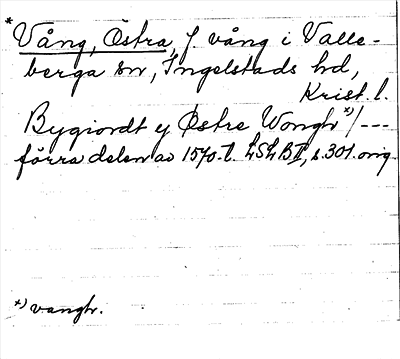 * Vång, Östra, f. vång i Valle-
berga sn, Ingelstads hd,
Krist. l.
Bygiordt y Østre Wongh *)/---
förra delen av 1570-t. LSLBI, s. 301. orig.
*) vangh.